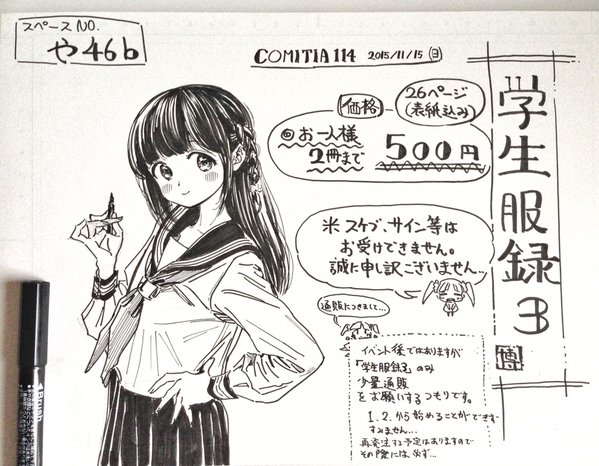 スペースNO.
や46b
COMITIA114 2015/11/15 (日)
学生服録3
博
26ページ
(表紙込み)
価格
◎お一人様
2冊まで
500円
米 スケブ、サイン等は
お受けできません。
誠に申し訳ございません…
通販につきまして…
イベント後ではありますが
「学生服録3」のみ
少量通販
をお願いするつもりです。
1.2.から始めることができず
すみません…
再発注する予定はありますので
その際には必ず…